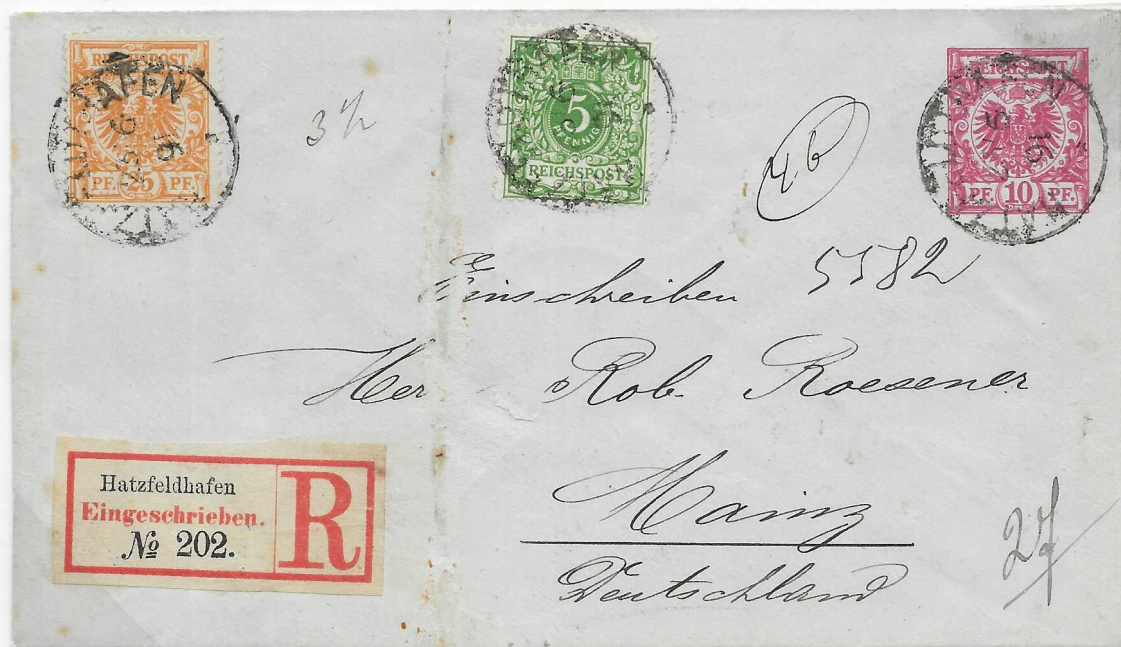 REICHSPOST
PF. 25 PF.
HAFEN
3 1/2
5
PFENNIG
REICHSPOST
REICHSPOST
PF. 10 PF.
Einschreiben 5582
Herr Rob. Roesener
Mainz
Deutschland
Hatzfeldhafen
Eingeschrieben.
No 202.
R